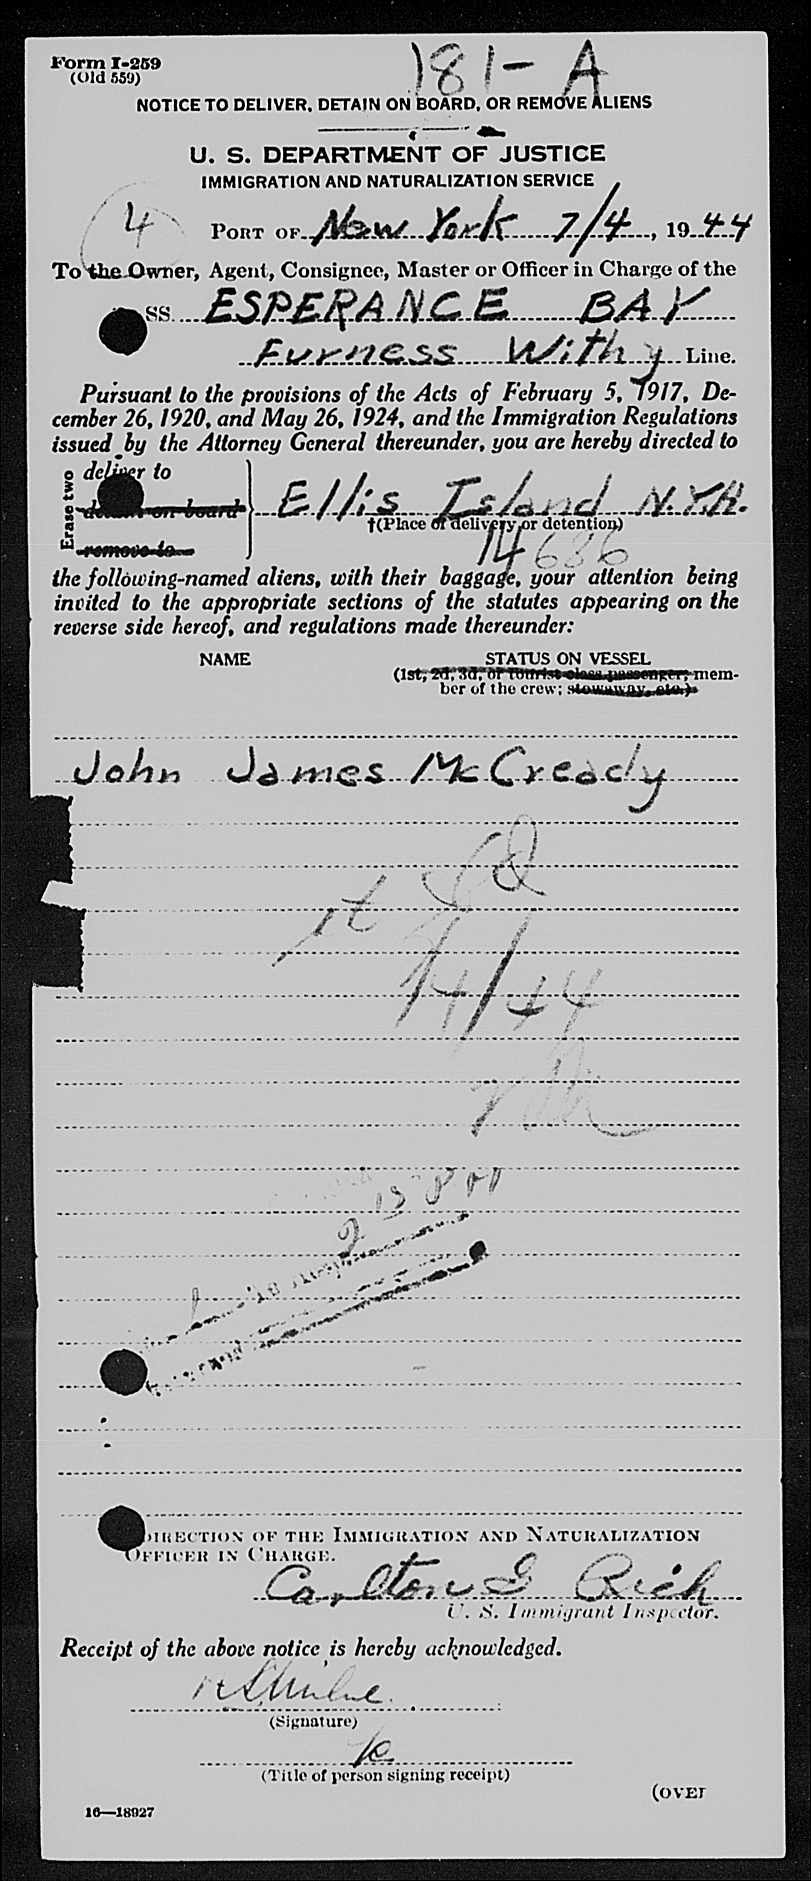 Form I-259
(Old 559)
181-A
NOTICE TO DELIVER, DETAIN ON BOARD, OR REMOVE ALIENS
U. S. DEPARTMENT OF JUSTICE
IMMIGRATION AND NATURALIZATION SERVICE
4
PORT OF New York 7/4, 1944
To the Owner, Agent, Consignee, Master or Officer in Charge of the
SS. ESPERANCE BAY
Furness Withy Line.
Pursuant to the provisions of the Acts of February 5, 1917, De-
cember 26, 1920, and May 26, 1924, and the Immigration Regulations
issued by the Attorney General thereunder, you are hereby directed to
Erase two
deliver to
detain on board
remove to
Ellis Island N.Y.H.
†(Place of delivery or detention)
14686
the following-named aliens, with their baggage, your attention being
invited to the appropriate sections of the statutes appearing on the
reverse side hereof, and regulations made thereunder:
NAME
STATUS ON VESSEL
(1st, 2d, 3d, or tourist class passenger; mem-
ber of the crew; stowaway, etc.)
John James McCready
14/44
2 15 PM
DIRECTION OF THE IMMIGRATION AND NATURALIZATION
OFFICER IN CHARGE.
Carlton G Rich
U. S. Immigrant Inspector.
Receipt of the above notice is hereby acknowledged.
(Signature)
(Title of person signing receipt)
(OVER
16—18927